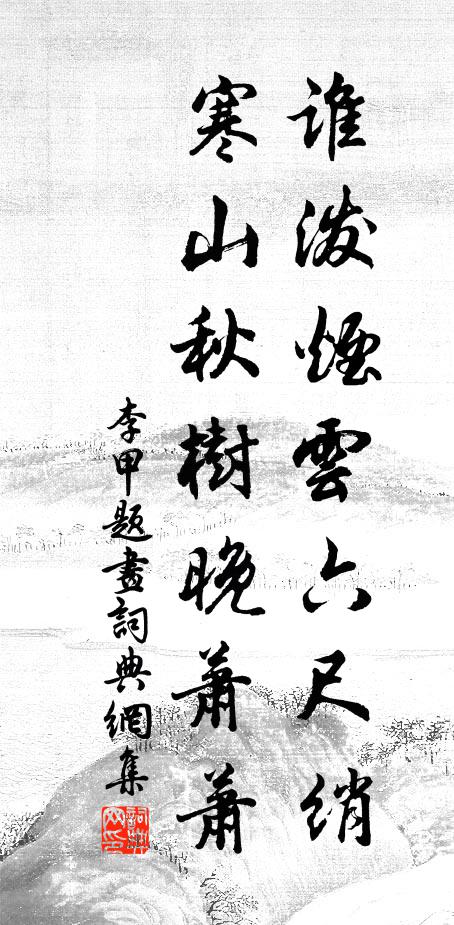 誰潑煙雲六尺綃
寒山秋樹晚蕭蕭
李甲題畫詞典網集